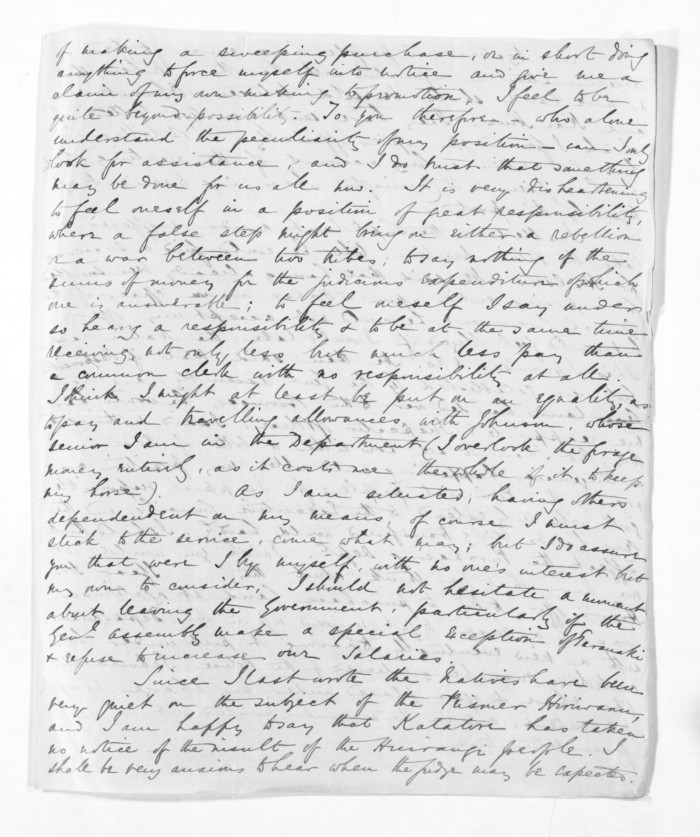 of making a sweeping purchase, or in short doing
anything to force myself into notice and give me a
claim of my own making to promotion, I feel to be
quite beyond possibility. To you therefore - who alone
understand the peculiarity of my position - can I only
look for assistance, and I do trust that something
may be done for us all now. It is very disheartening
to feel oneself in a position of great responsibility,
where a false step might bring on either a rebellion
or a war between two tribes; to say nothing of the
sums of money for the judicious expenditure of which
one is answerable; to feel oneself I say under
so heavy a responsibility & to be at the same time
receiving not only less but much less pay than
a common clerk with no responsibility at all.
I think I might at least be put on an equality, as
to pay and travelling allowances, with Johnson, whose
senior I am in the Department (I overlook the forage
money entirely, as it costs me the whole of it, to keep
my horse). As I am situated, having others
dependendent on my means, of course I must
stick to the service, come what may; but I do assure
you that were I by myself, with no one's interest but
my own to consider, I should not hesitate a moment
about leaving the Government, particularly if the
Genl. assembly make a special exception of Taranaki
& refuse to increase our salaries.
Since I last wrote the Natives have been
very quiet on the subject of the
and I am happy to say that Katatore has taken
no notice of the result of the Huirangi people. I
shall be very anxious to hear when the judge may be expected.